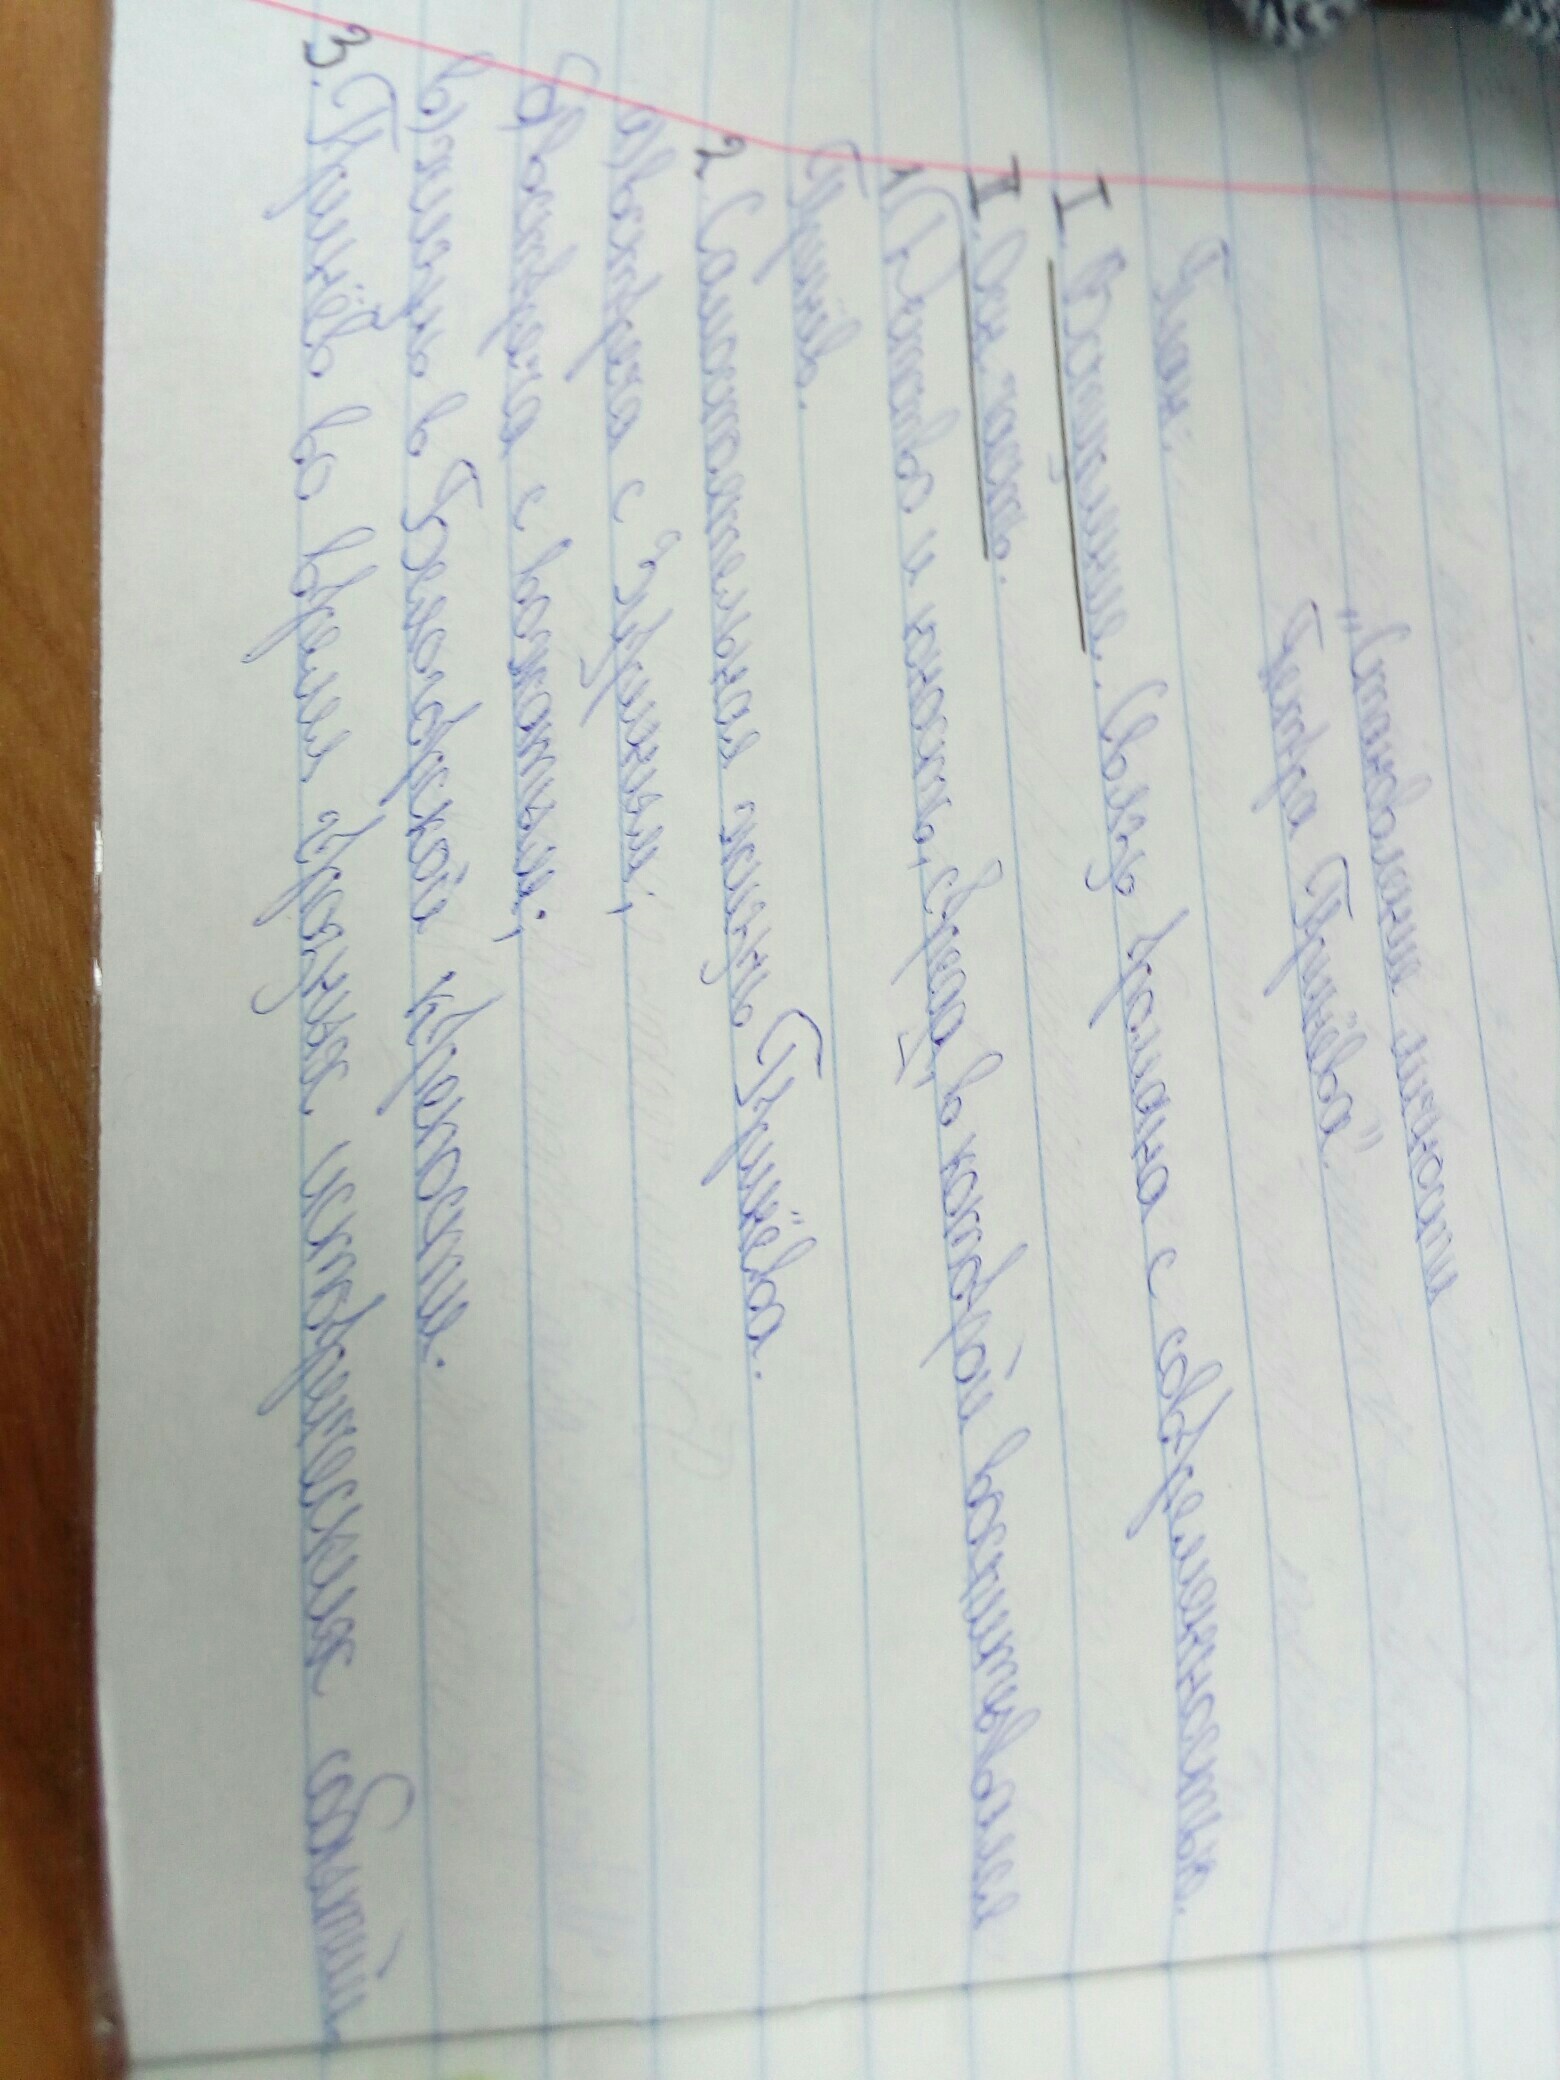 "Становление личности
Петра Гринёва".
План.
I. Вступление. Связь романа с современностью.
II. Осн. часть.
1) Детство и юность, среда в которой воспитывался
Гринёв.
2. Самостоятельная жизнь Гринёва.
а) встреча с Зуриным;
б) встреча с вожатым;
в) жизнь в Белогорской крепости.
3. Гринёв в время грозных исторических событий